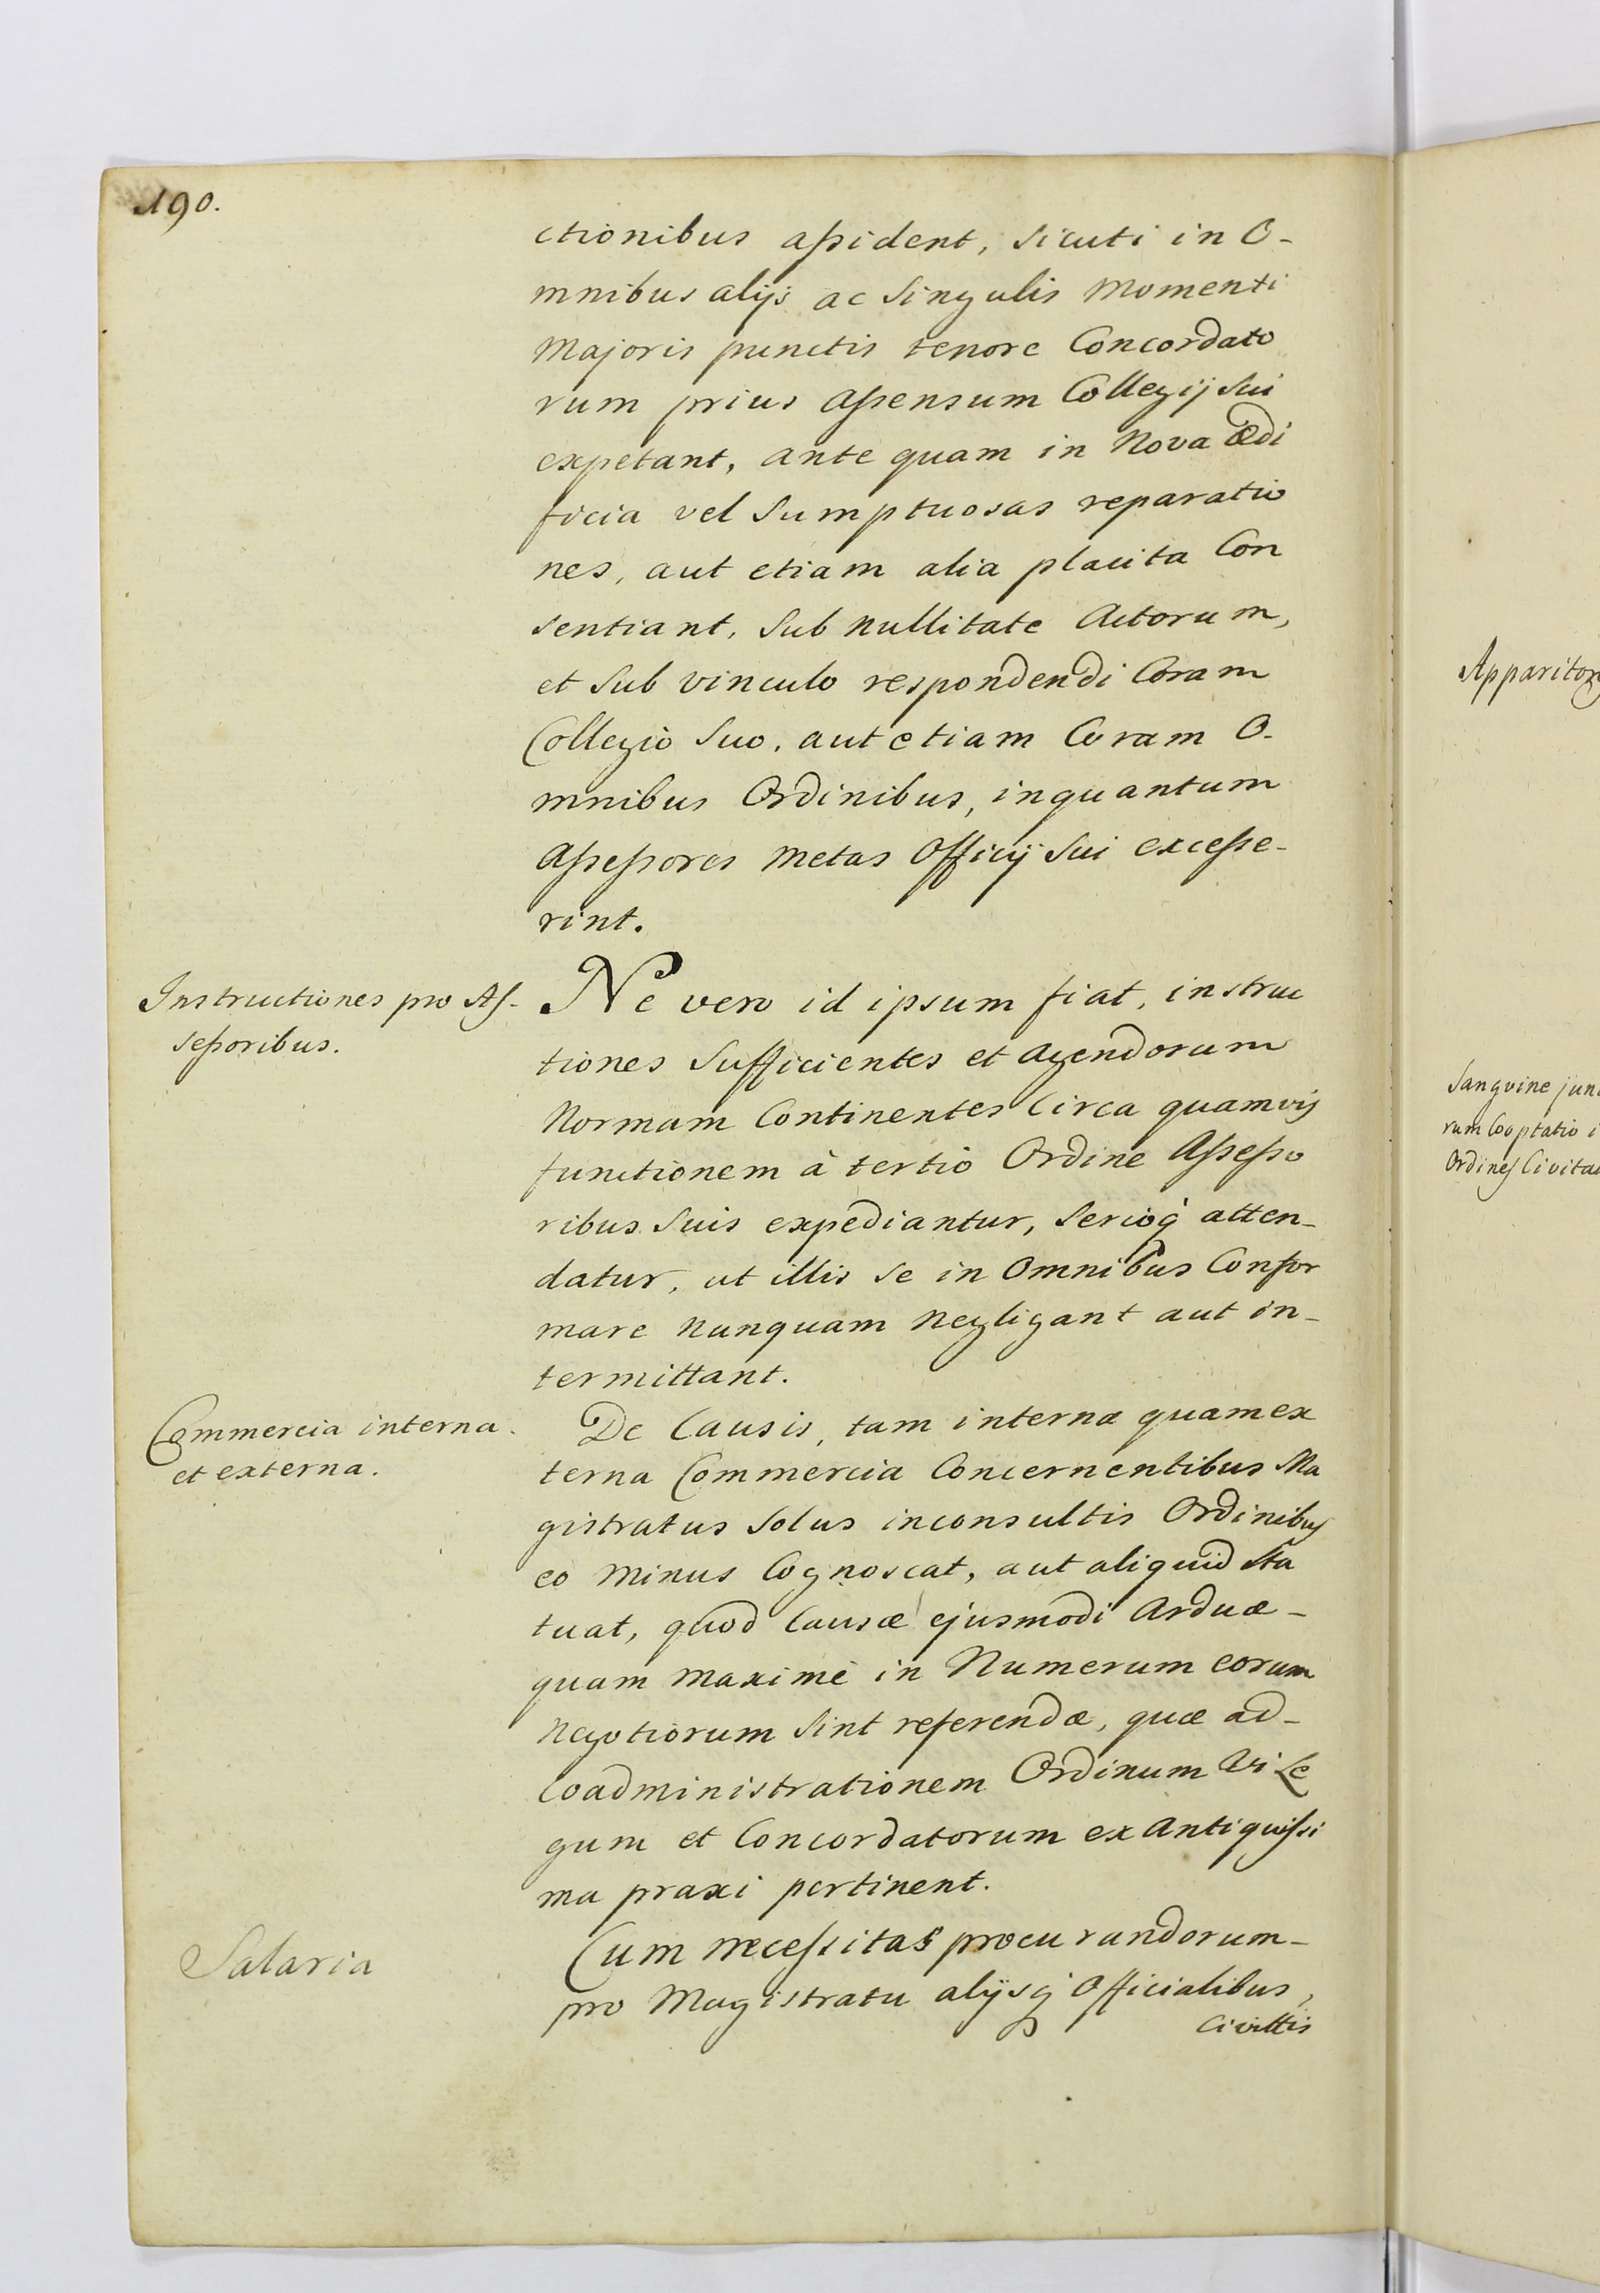 190.
ctionibus assident, sicuti in O-
mnibus alijs ac Singulis Momenti
Majoris punctis tenore Concordato
rum prius Assensum Collegij Sui
expetant, ante quam in Nova Ædi
ficia vel Sumptuosas reparatio
nes, aut etiam alia placita Con
sentiant, Sub Nullitate Actorum,
et Sub vinculo respondendi Coram
Collegio Suo, aut etiam Coram O-
mnibus Ordinibus, inquantum
Assessores Metas Officij Sui excesse-
rint.
Instructiones pro As-
sessoribus.
Ne vero id ipsum fiat, instruc
tiones Sufficientes et Agendorum
Normam Continentes Circa quamvis
functionem à tertio Ordine Assesso
ribus Suis expediantur, Serioq́ atten-
datur, ut illis se in Omnibus Confor
mare Nunquam Negligant aut in-
termittant.
Commercia interna
et externa.
De Causis, tam interna quam ex
terna Commercia Concernentibus Ma
gistratus Solus inconsultis Ordinibus
eo Minus Cognoscat, aut aliquid Sta
tuat, quod Causæ ejusmodi Arduæ-
quam Maximè in Numerum eorum
Negotiorum Sint referendæ, quæ ad-
Coadministrationem Ordinum Vi Le
gum et Concordatorum ex Antiquissi
ma praxi pertinent.
Salaria
Cum necessitas procurandorum-
pro Magistratu alijsq́ Officialibus,
Civittis
Apparitor
Sanguine jun
rum Cooptatio i
Ordines Civita